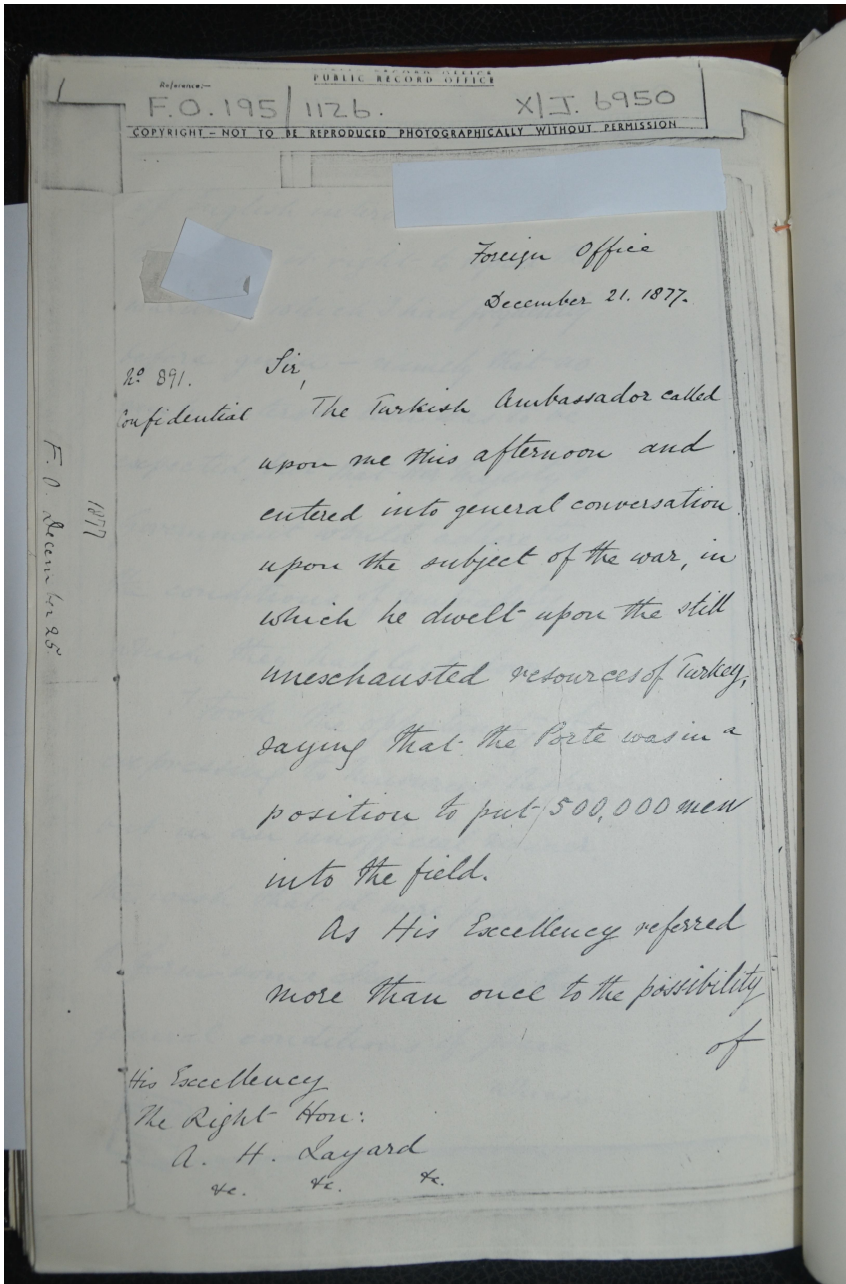 Reference:—
PUBLIC RECORD OFFICE
F.O. 195/1126. X/J. 6950
COPYRIGHT – NOT TO BE REPRODUCED PHOTOGRAPHICALLY WITHOUT PERMISSION
Foreign Office
December 21. 1877.
Nº 891.
Confidential
Sir,
The Turkish Ambassador called
upon me this afternoon and
entered into general conversation
upon the subject of the war, in
which he dwelt upon the still
unexhausted resources of Turkey,
saying that the Porte was in a
position to put 500,000 men
into the field.
As His Excellency referred
more than once to the possibility
of
His Excellency
The Right Hon:
A. H. Layard
&c. &c. &c.
1877
F. O. December 25.